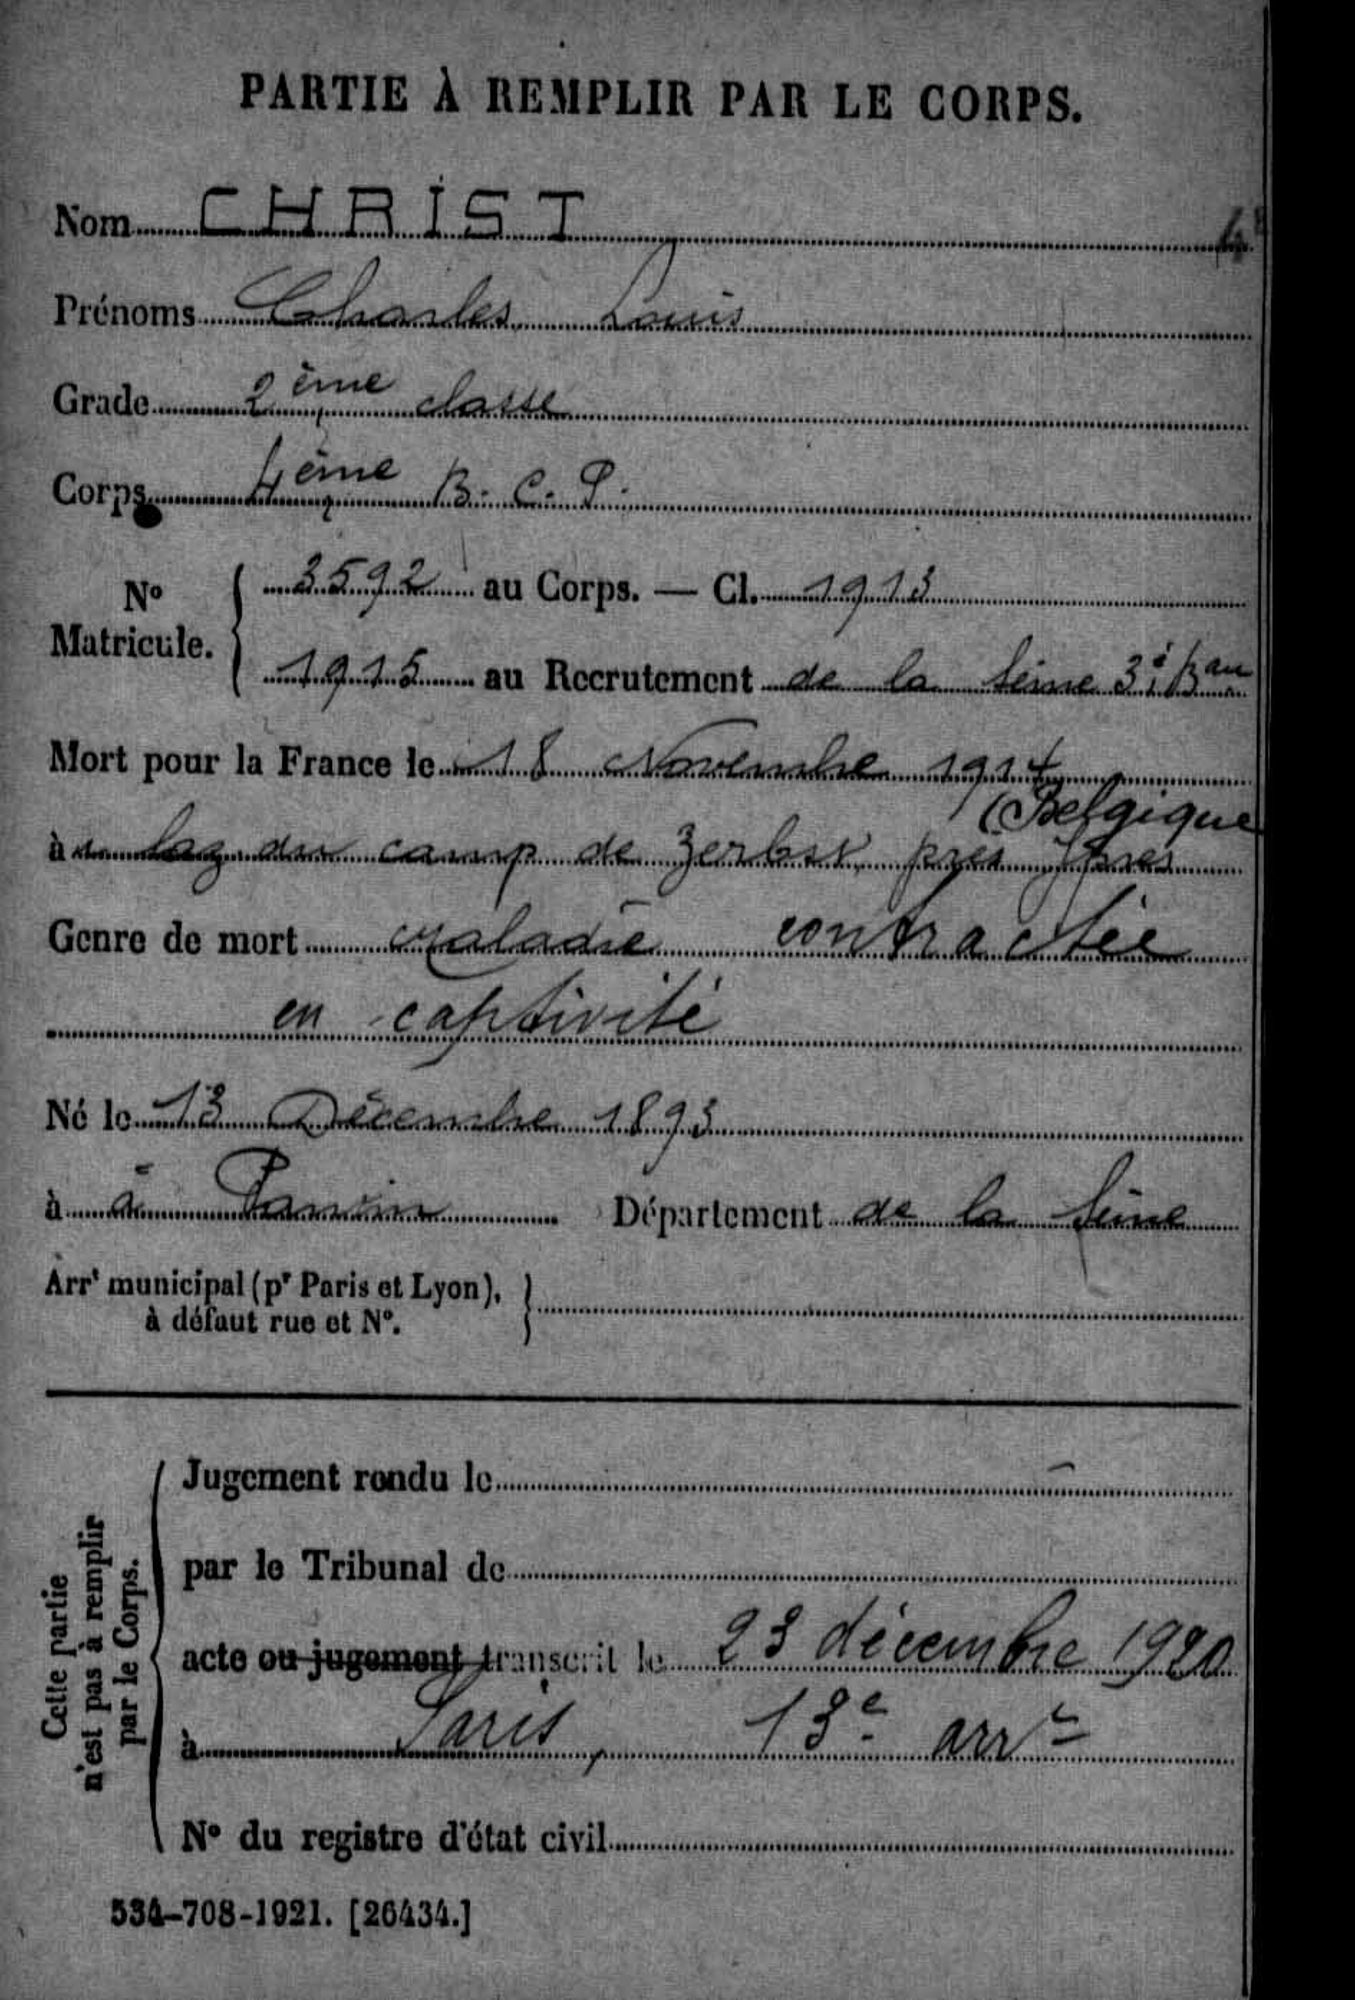 PARTIE À REMPLIR PAR LE CORPS.
Nom CHRIST
Prénoms Charles Louis
Grade 2ème classe
Corps 4ème B. C. P.
Nº Matricule. 3592 au Corps. — Cl. 1913
1915 au Recrutement de la Seine 3è Bau
Mort pour la France le 18 Novembre 1914
(Belgique
à laz. du camp de Zerbst près Ypres
Genre de mort maladie contractée
en captivité
Né le 13 Décembre 1893
à à Pantin Département de la Seine
Arrt municipal (pr Paris et Lyon),
à défaut rue et Nº.
Cette partie
n'est pas à remplir
par le Corps.
Jugement rendu le
par le Tribunal de
acte ou jugement transcrit le 23 décembre 1920
à Paris, 13e arrt
Nº du registre d'état civil
534-708-1921. [26434.]